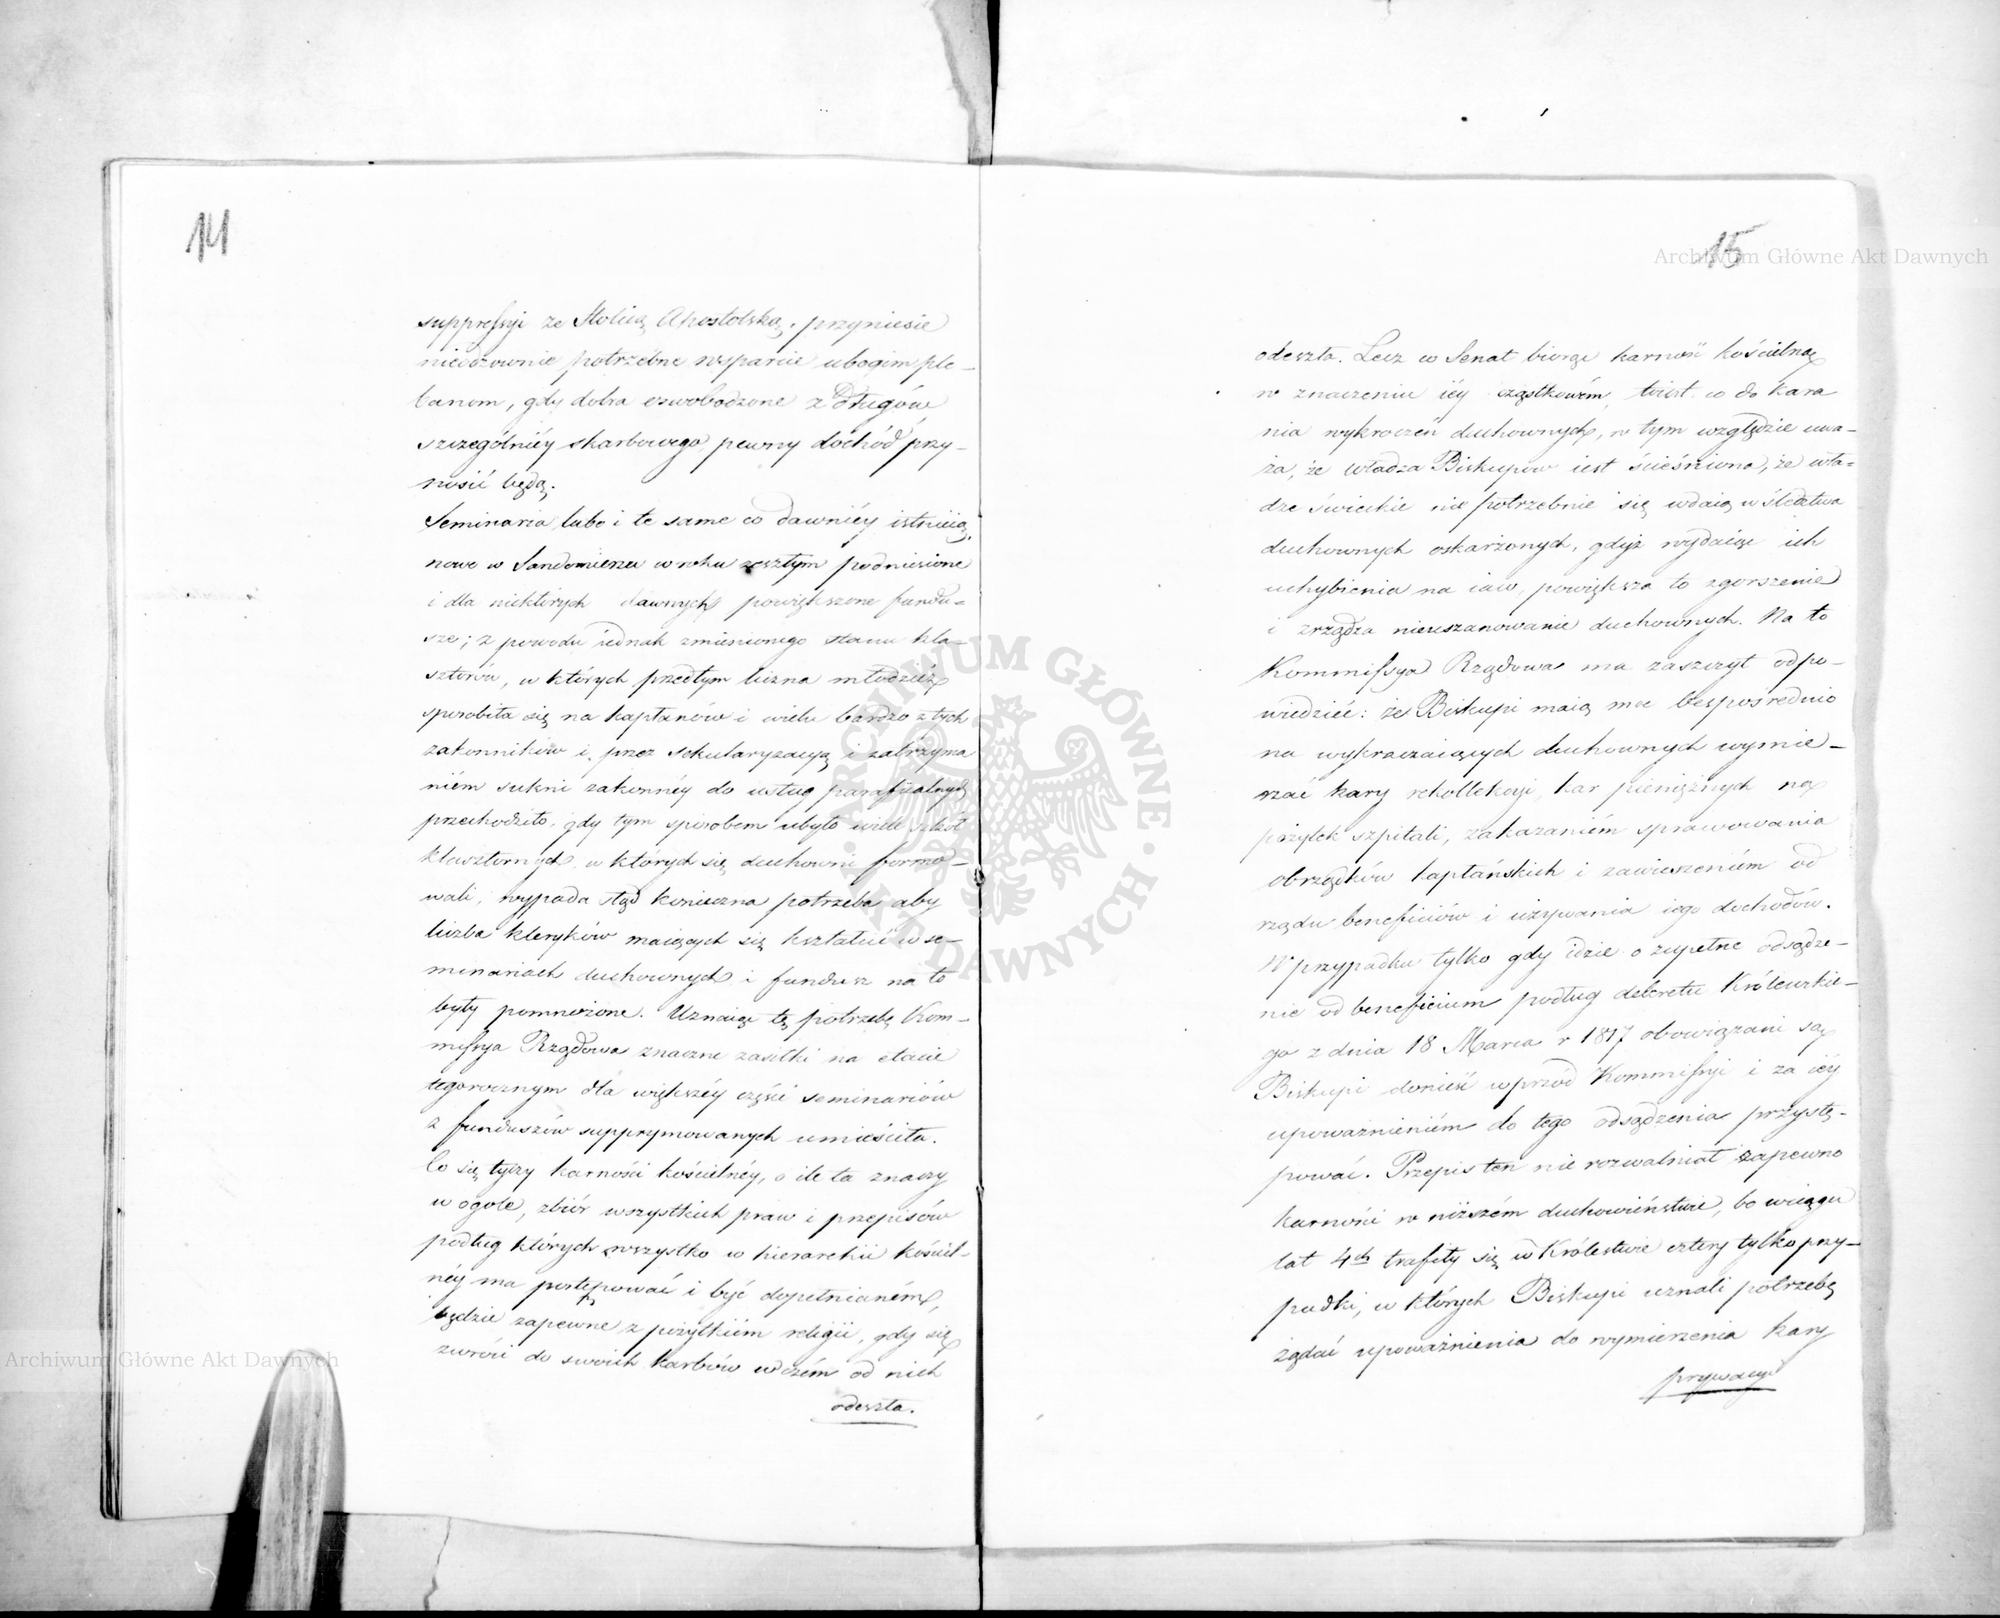 14
suppressyi ze Stolicą Apostolską, przyniesie
niedozownie potrzebne wsparcie ubogim ple-
banom, gdy dobra oswobodzone z długów
szczególniéy skarbowego pewny dochód przy-
nosić będą.
Seminaria lubo i te same co dawniéy istnieią,
nowe w Sandomierzu w roku zeszłym podniesione
i dla niektórych dawnych powiększone fundu-
sze; z powodu iednak zmienionego stanu kla-
sztorów, w których przedtym liczna młodzież
sposobiła się na kapłanów i wielu bardzo z tych
zakonników i przez sekularyzacyą i zatrzyma
niém sukni zakonnéy do usług parafialnych
przechodziło, gdy tym sposobem ubyło wiele szkół
klasztornych w których się duchowni formo-
wali, wypada stąd konieczna potrzeba aby
liczba kleryków maiących się kształcić w se-
minariach duchownych i fundusz na to
były pomnożone. Uznaiąc tę potrzebę Kom-
missya Rządowa znaczne zasiłki na etacie
tegorocznym dla większéy części seminariów
z funduszów supprymowanych umieściła.
Co się tyczy karności kościelnéy, o ile ta znaczy
w ogóle, zbiór wszystkich praw i przepisów
podług których wszystko w hierarchii kościel-
néy ma postępować i być dopełnianém,
będzie zapewne z pożytkiém religii, gdy się
zwróci do swoich karbów w czém od nich
odeszła.
15
odeszła. Lecz w Senat biorąc karność kościelną
w znaczeniu iéy cząstkowém, to iest co do kara
nia wykroczeń duchownych, w tym względzie uwa-
ża, że władza Biskupów iest ścieśniona, że wła-
dze świeckie nie potrzebnie się wdaią w śledztwa
duchownych oskarżonych, gdyż wydaiąc ich
uchybienia na iaw, powiększa to zgorszenie
i zrządza nieuszanowanie duchownych. Na to
Kommissya Rządowa ma zaszczyt odpo-
wiedzieć: że Biskupi maią moc bezpośrednio
na wykraczaiących duchownych wymie-
rzać kary rekollekcyi, kar pieniężnych na
pożytek szpitali, zakazaniém sprawowania
obrządków kapłańskich i zawieszeniém od
rządu beneficiów i używania iego dochodów.
W przypadku tylko gdy idzie o zupełne odsądze-
nie od beneficium podług dekretu Królewskie-
go z dnia 18 Marca r 1817 obowiązani są
Biskupi donieść wprzód Kommissyi i za iéy
upoważnieniém do tego odsądzenia przystę-
pować. Przepis ten nie rozwalniał zapewno
karności w niższém duchowieństwie, bo w ciągu
lat 4ch trafiły się w Królestwie cztery tylko przy-
padki, w których Biskupi uznali potrzebę
żądać upoważnienia do wymierzenia kary
prywacyi
Archiwum Główne Akt Dawnych
ARCHIWUM GŁÓWNE AKT DAWNYCH
Archiwum Główne Akt Dawnych